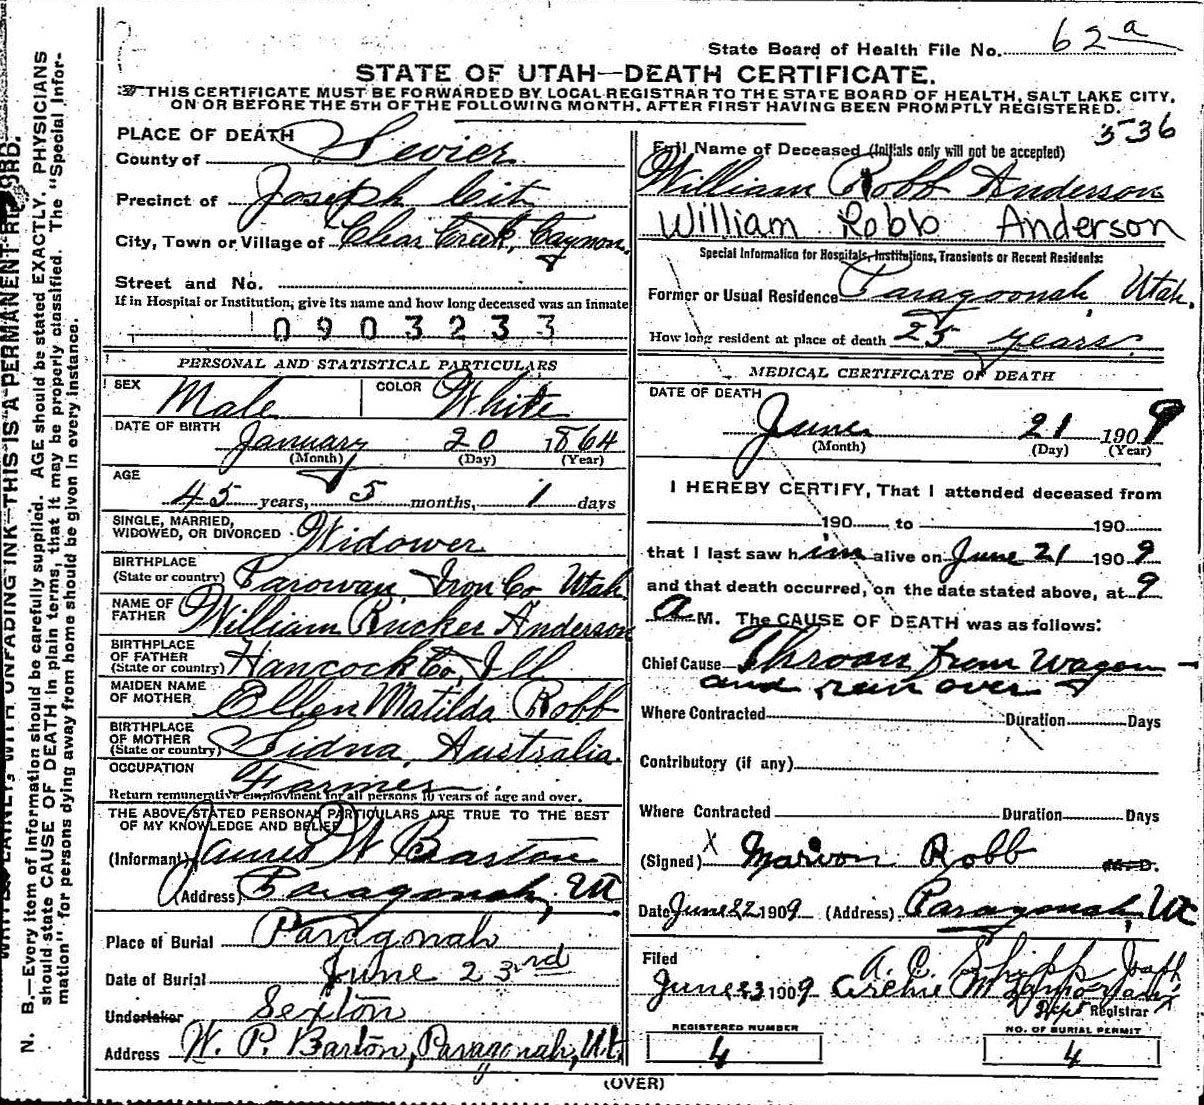 State Board of Health File No. 62a
STATE OF UTAH—DEATH CERTIFICATE.
THIS CERTIFICATE MUST BE FORWARDED BY LOCAL REGISTRAR TO THE STATE BOARD OF HEALTH, SALT LAKE CITY,
ON OR BEFORE THE 5TH OF THE FOLLOWING MONTH, AFTER FIRST HAVING BEEN PROMPTLY REGISTERED.
536
PLACE OF DEATH
County of Sevier
Precinct of Joseph Cit
City, Town or Village of Clear Creek, Caynon
Street and No.
If in Hospital or Institution, give its name and how long deceased was an inmate
0903233
PERSONAL AND STATISTICAL PARTICULARS
SEX Male COLOR White
DATE OF BIRTH January 20 1864
(Month) (Day) (Year)
AGE
45 years, 5 months, 1 days
SINGLE, MARRIED,
WIDOWED, OR DIVORCED Widower
BIRTHPLACE
(State or country) Parowan, Iron Co Utah
NAME OF
FATHER William Ricker Anderson
BIRTHPLACE
OF FATHER
(State or country) Hancock Co, Ill
MAIDEN NAME
OF MOTHER Ellen Matilda Robb
BIRTHPLACE
OF MOTHER
(State or country) Sidna, Australia.
OCCUPATION Farmer
Return remunerative employment for all persons 10 years of age and over.
THE ABOVE STATED PERSONAL PARTICULARS ARE TRUE TO THE BEST
OF MY KNOWLEDGE AND BELIEF
(Informant) James W Baston
(Address) Paragonah, Ut
Place of Burial Paragonah
Date of Burial June 23rd
Undertaker Sexton
Address W. P. Barton, Paragonah, Ut.
Full Name of Deceased (Initials only will not be accepted)
William Robb Anderson
William Robb Anderson
Special Information for Hospitals, Institutions, Transients or Recent Residents:
Former or Usual Residence Paragoonah, Utah.
How long resident at place of death 25 years.
MEDICAL CERTIFICATE OF DEATH
DATE OF DEATH
June 21 1909
(Month) (Day) (Year)
I HEREBY CERTIFY, That I attended deceased from
190 to 190
that I last saw him alive on June 21 1909
and that death occurred, on the date stated above, at 9
A M. The CAUSE OF DEATH was as follows:
Chief Cause Throan from Wagon
and run over
Where Contracted Duration Days
Contributory (if any)
Where Contracted Duration Days
(Signed) X Marion Robb M.D.
Date June 22 1909 (Address) Paragonah, Ut
Filed
A. C. Shipp
June 23 1909 Archie M
Dept Registrar
REGISTERED NUMBER
4
NO. OF BURIAL PERMIT
4
(OVER)
WRITE PLAINLY, WITH UNFADING INK—THIS IS A PERMANENT RECORD.
N. B.—Every item of information should be carefully supplied. AGE should be stated EXACTLY. PHYSICIANS
should state CAUSE OF DEATH in plain terms, that it may be properly classified. The "Special Infor-
mation" for persons dying away from home should be given in every instance.